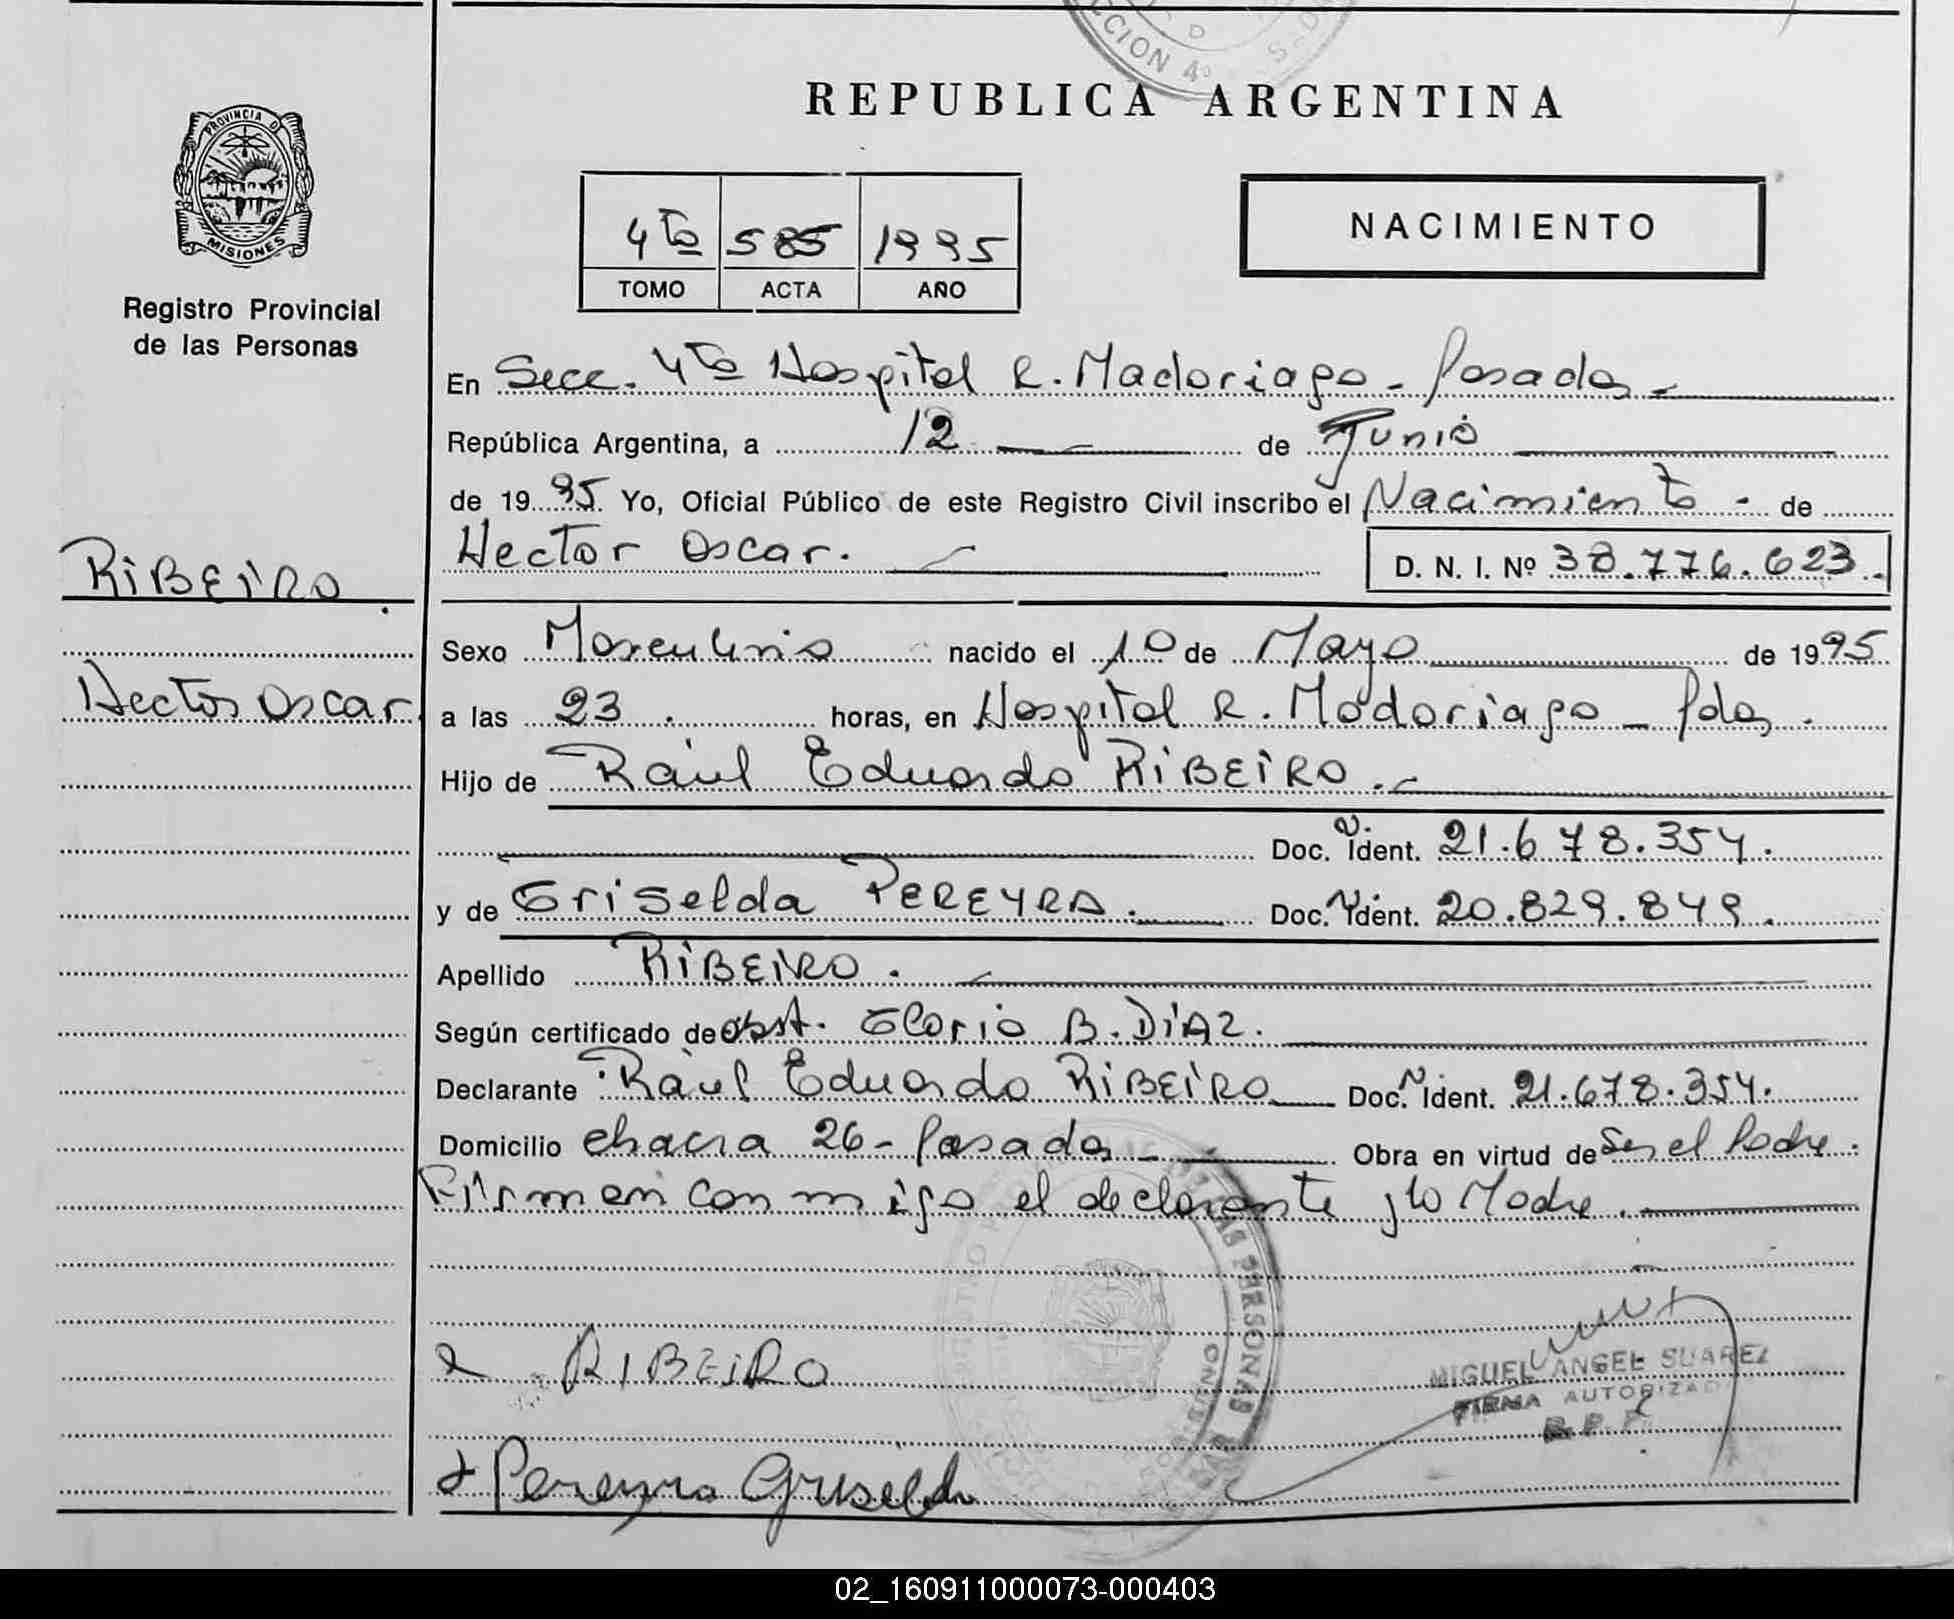 CCION 4º
REPUBLICA ARGENTINA
PROVINCIA DE
MISIONES
Registro Provincial
de las Personas
4to 585 1995
TOMO ACTA AÑO
NACIMIENTO
En Secc. 4ta Hospital R. Madariaga - Posadas -
República Argentina, a 12 de Junio
de 1995 Yo, Oficial Público de este Registro Civil inscribo el Nacimiento - de
Hector Oscar. D. N. I. Nº 38.776.623.
RiBEiRO.
Hector Oscar.
Sexo Masculino nacido el 10 de Mayo de 1995
a las 23 . horas, en Hospital R. Madariaga - Pdas.
Hijo de Raúl Eduardo RiBEiRO.
Doc. N. Ident. 21.678.354.
y de Griselda PEREYRA. Doc. N. Ident. 20.829.849.
Apellido RiBEiRO.
Según certificado de obst. Gloria B. DiAZ.
Declarante Raúl Eduardo RiBEiRO Doc. N. Ident. 21.678.354.
Domicilio chacra 26 - Posadas - Obra en virtud de Ser el Padre.
Firman conmigo el declarante y la Madre.
RIBEiRO
MIGUEL ANGEL SUAREZ
FIRMA AUTORIZADA
R.P.P.
Pereyra Griselda
LAS PERSONAS
02_160911000073-000403